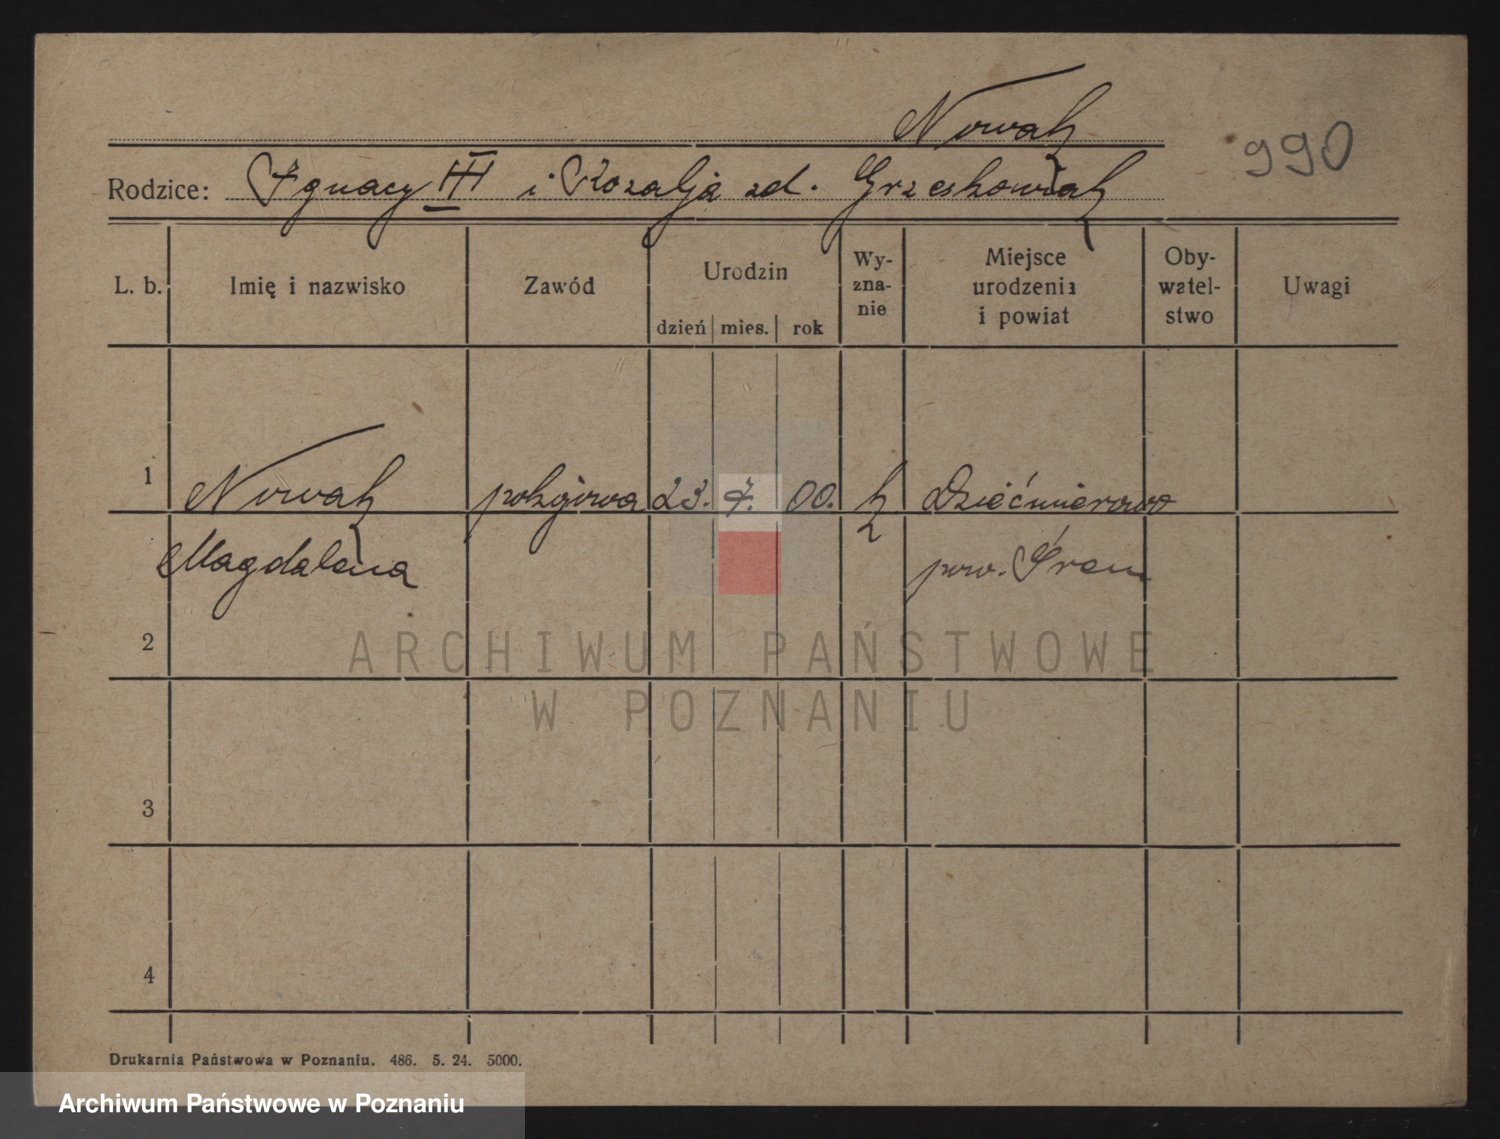 Nowak
990
Rodzice: Ignacy III i Rozalja zd. Grzeskowiak
L. b.
Imię i nazwisko
Zawód
Urodzin
dzień
mies.
rok
Wy-
zna-
nie
Miejsce
urodzenia
i powiat
Oby-
watel-
stwo
Uwagi
1
Nowak
pokojowa
23.
7.
00.
k
Dziećmierowo
Magdalena
pow. Śrem
2
ARCHIWUM PAŃSTWOWE
W POZNANIU
3
4
Drukarnia Państwowa w Poznaniu. 486. 5. 24. 5000.
Archiwum Państwowe w Poznaniu